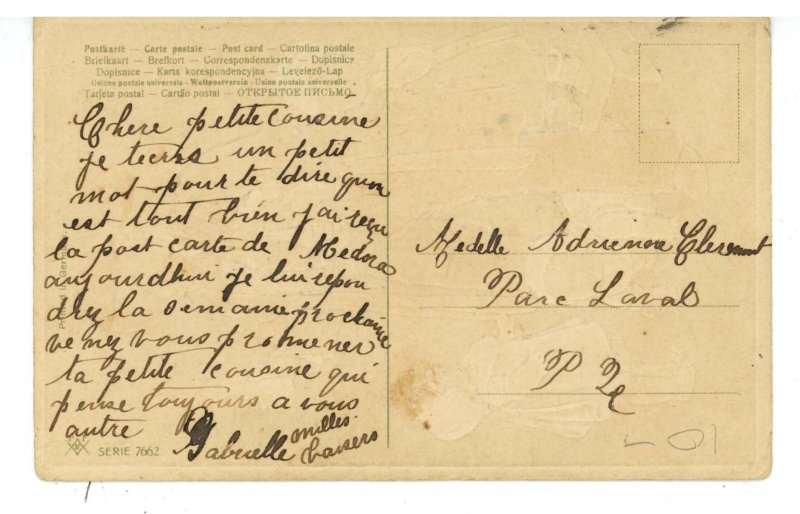 Postkarte — Carte postale — Post card — Cartolina postale
Briefkaart — Brefkort — Correspondenzkarte — Dopisnica
Dopisnice — Karta korespondencyjna — Levelező-Lap
Union postale universelle - Weltpostverein - Union postale universelle
Tarjeta postal — Cartão postal — ОТКРЫТОЕ ПИСЬМО
Chere petite cousine
je tecris un petit
mot pour te dire quon
est tout bien j'ai reçu
la post carte de Medora
aujourdhui je lui repon
drez la semaine prochaine
venez vous promener
ta petite cousine qui
pense toujours a vous
autre
Gabrielle milles
baisers
SERIE 7662
Printed in Germ
Medelle Adrienne Clermont
Parc Laval
P Qc